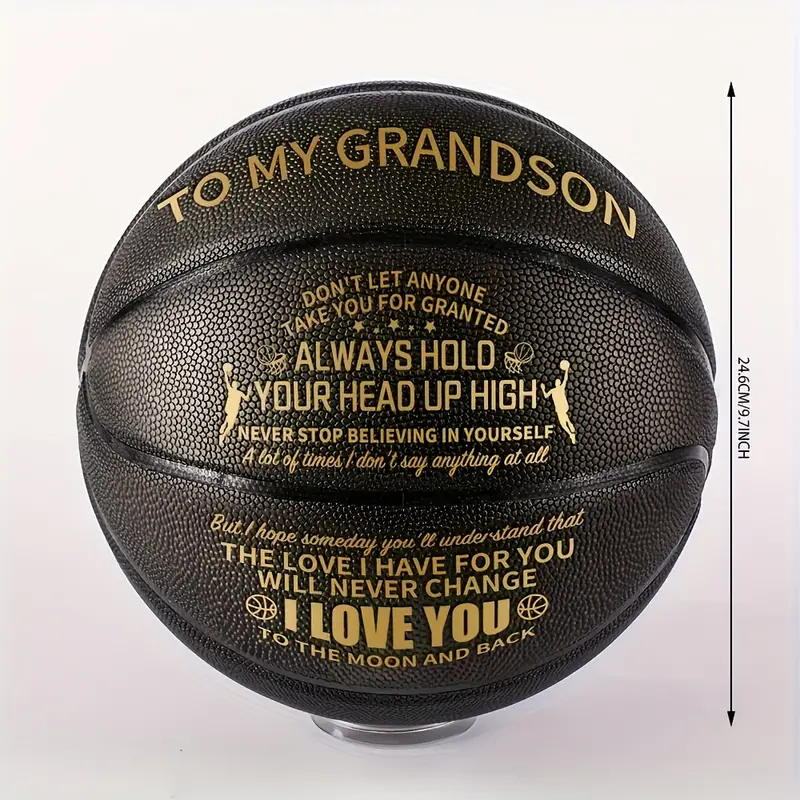 TO MY GRANDSON
DON'T LET ANYONE
TAKE YOU FOR GRANTED
ALWAYS HOLD
YOUR HEAD UP HIGH
NEVER STOP BELIEVING IN YOURSELF
A lot of times I don't say anything at all
But I hope someday you'll understand that
THE LOVE I HAVE FOR YOU
WILL NEVER CHANGE
I LOVE YOU
TO THE MOON AND BACK
24.6CM/9.7INCH